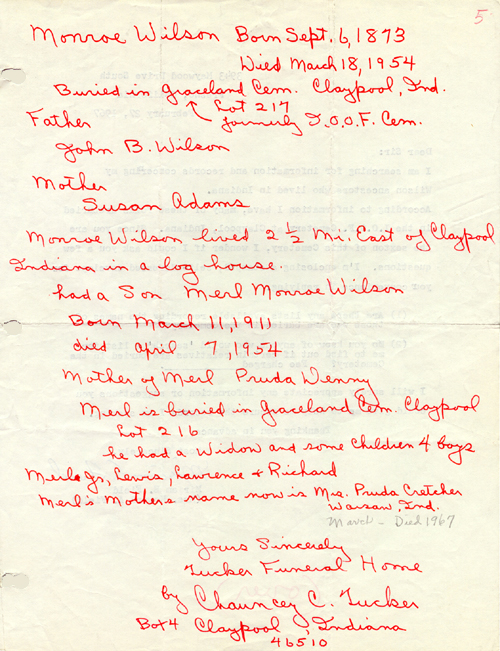 5
Monroe Wilson Born Sept. 6, 1873
Died March 18, 1954
Buried in Graceland Cem. Claypool, Ind.
Lot 217
Father
formerly I.O.O.F. Cem.
John B. Wilson
Mother
Susan Adams
Monroe Wilson lived 2 1/2 Mi. East of Claypool
Indiana in a log house.
had a Son Merl Monroe Wilson
Born March 11, 1911
died April 7, 1954
Mother of Merl Pruda Denny
Merl is buried in Graceland Cem. Claypool
Lot 216
he had a Widow and some children 4 boys
Merle Jr, Lewis, Lawrence & Richard
Merl's Mothers name now is Mrs. Pruda Cretcher
Warsaw, Ind.
March - Died 1967
Yours Sincerely
Tucker Funeral Home
by Chauncey C. Tucker
Box 4 Claypool, Indiana
46510